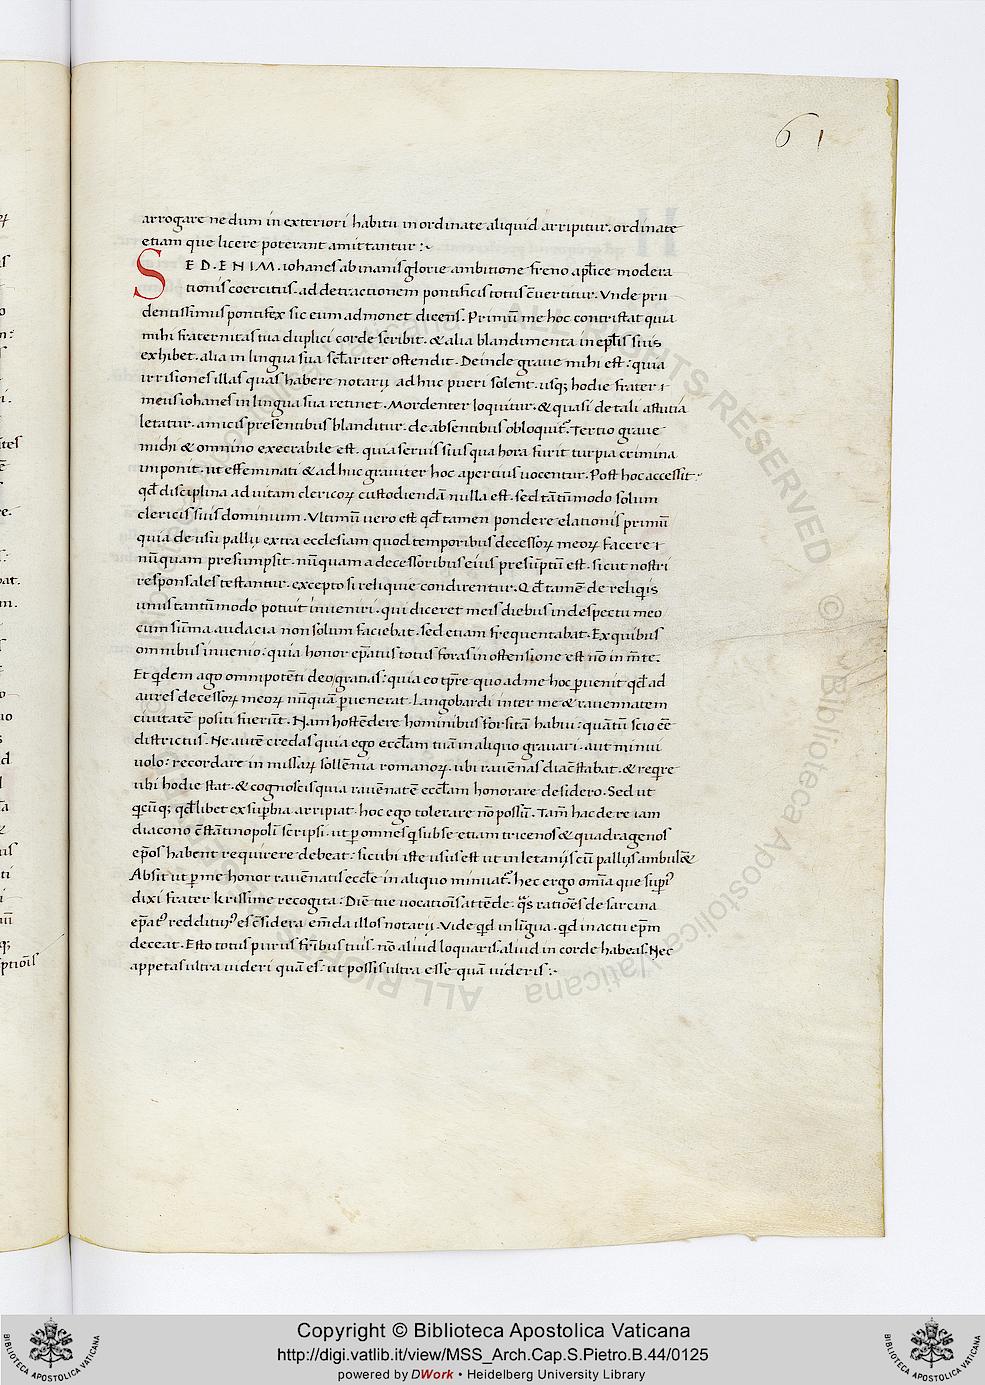 61
arrogare ne dum in exteriori habitu inordinate aliquid arripitur. ordinate
etiam que licere poterant amittantur :~
SED. ENIM. iohanes ab inanis glorie ambitione freno apl̄ice modera
tionis coercitus. ad detractionem pontificis totus c̄uertitur. Vnde pru
dentissimus pontifex sic eum admonet dicens. Primū me hoc contristat quia
mihi fraternitas tua duplici corde scribit. & alia blandimenta in epl̄is suis
exhibet. alia in lingua sua secl̄ariter ostendit. Deinde graue mihi est: quia
irrisiones illas quas habere notarij adhuc pueri solent. usq; hodie frater
meus iohanes in lingua sua retinet. Mordenter loquitur. & quasi de tali astutia
letatur. amicis presentibus blanditur. de absentibus obloquit̃. Tertio graue
michi & omnino execrabile est. quia seruis suis qua hora furit turpia crimina
imponit. ut effeminati & adhuc grauiter hoc apertius uocentur. Post hoc accessit.
qd̄ disciplina ad uitam clericoꝝ custodiendā nulla est. sed tātūmodo solum
clericis suis dominium. Vltimū uero est qd̄ tamen pondere elationis primū
quia de usu pallij extra ecclesiam quod temporibus decessoꝝ meoꝝ facere
nūquam presumpsit. nūquam a decessoribus eius presūptū est. sicut nostri
responsales testantur. excepto si reliquie condirentur. Qd̄ tamē de reliqis
unus tantūmodo potuit inueniri. qui diceret meis diebus in despectu meo
cum sūma audacia non solum faciebat. sed etiam frequentabat. Ex quibus
omnibus inuenio: quia honor ep̄atus totus foras in ostensione est nō in m̄te.
Et qdem ago omnipotēti deo gratias: quia eo tp̄re quo ad me hoc ꝑuenit qd̄ ad
aures decessoꝝ meoꝝ nūquā ꝑuenerat. Langobardi inter me & rauennatem
ciuitatē positi fuerūt. Nam hostēdere hominibus forsitā habui: quātū scio eē
districtus. Ne autē credas quia ego eccl̄am tuā in aliquo grauari. aut minui
uolo: recordare in missaꝝ sollēnia romanoꝝ. ubi rauēnas diac̄ stabat. & reqre
ubi hodie stat. & cognoscis quia rauēnatē eccl̄am honorare desidero. Sed ut
qcūq; qd̄libet ex suꝑbia arripiat. hoc ego tolerare nō possū. Tam̄ hac de re iam
diacono c̄stātinopoli scripsi. ut ꝑ omnes q subse etiam tricenos & quadragenos
ep̄os habent requirere debeat: sicubi iste usus est ut in letanijs cū pallijs ambulēt
Absit ut ꝑ me honor rauēnatis eccl̄e in aliquo minuat̃. hec ergo om̄ia que suꝑi᷑
dixi frater kr̄issime recogita: Diē tue uocatiōis attēde. qs ratiōes de sarcina
ep̄at᷑ redditur᷑ es c̄sidera em̄da illos notarij. Vide qd in līgua. qd in actu ep̄m
deceat. Esto totus purus fr̄ibus tuis. nō aliud loquaris. aliud in corde habeas. Nec
appetas ultra uideri quā es: ut possis ultra esse quā uideris :~
Copyright © Biblioteca Apostolica Vaticana
http://digi.vatlib.it/view/MSS_Arch.Cap.S.Pietro.B.44/0125
powered by DWork • Heidelberg University Library